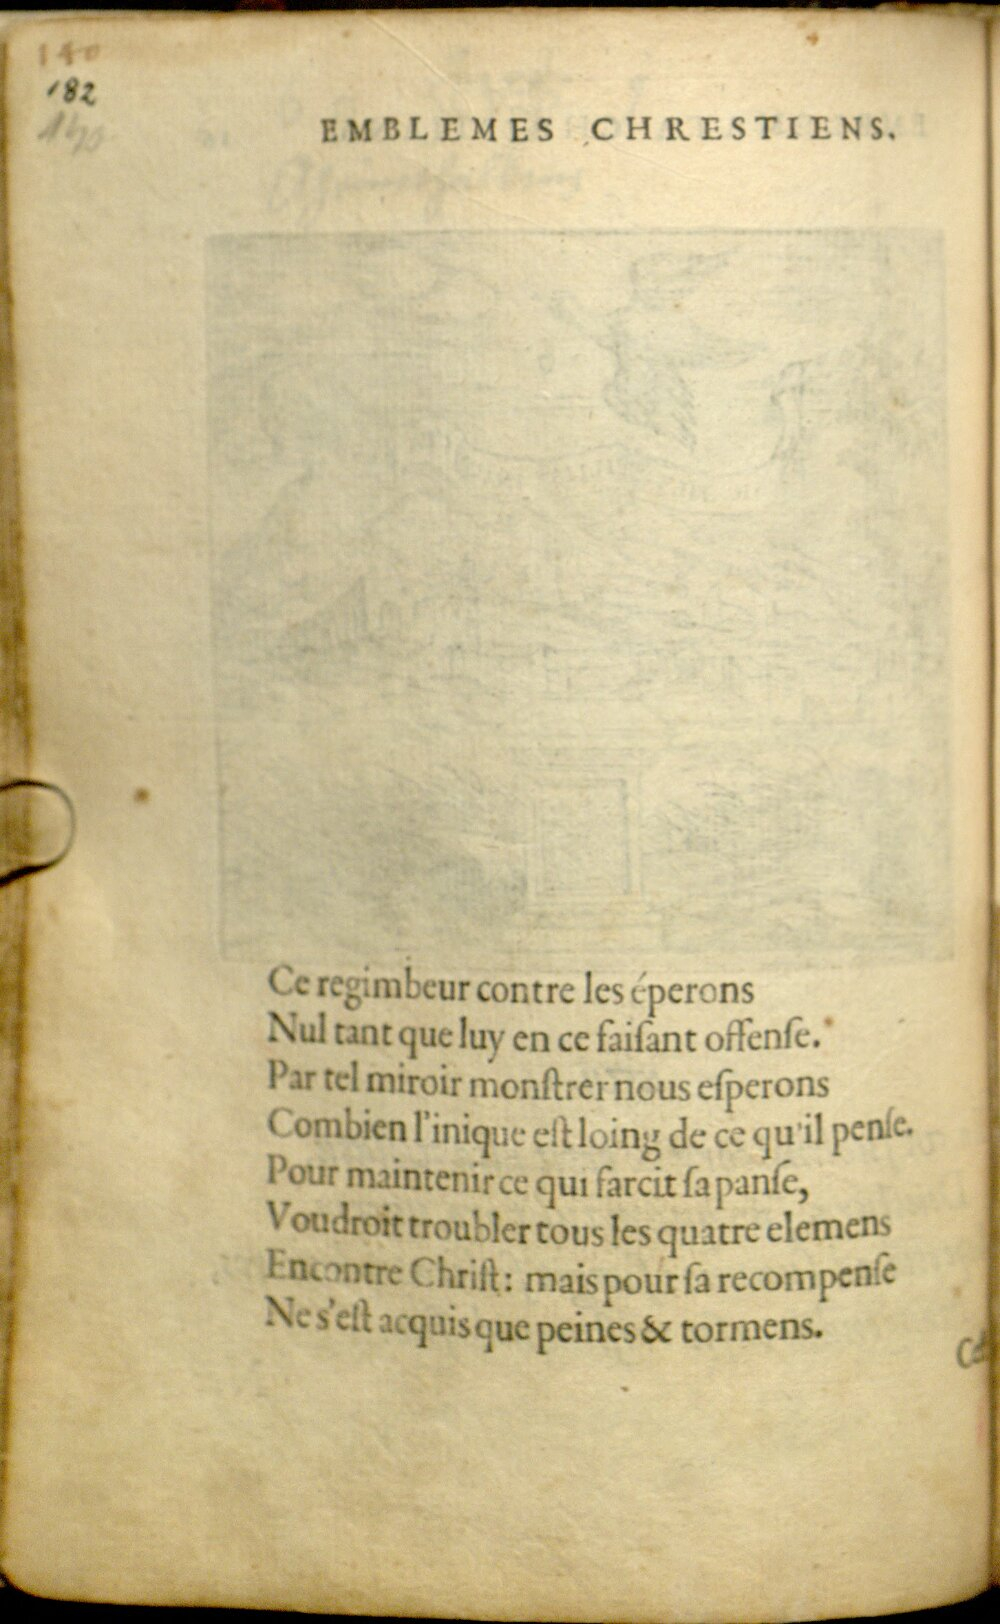 140
182
EMBLEMES CHRESTIENS.
Ce regimbeur contre les éperons
Nul tant que luy en ce faiſant offenſe.
Par tel miroir monſtrer nous eſperons
Combien l'inique eſt loing de ce qu'il penſe.
Pour maintenir ce qui farcit ſa panſe,
Voudroit troubler tous les quatre elemens
Encontre Chriſt: mais pour ſa recompenſe
Ne s'eſt acquis que peines & tormens.